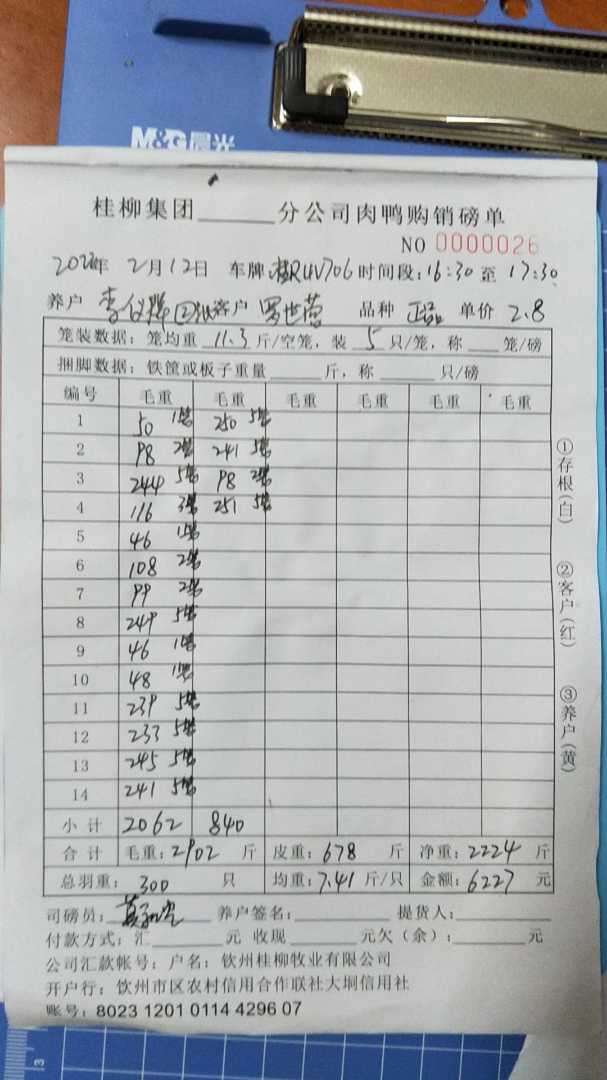 M&G晨光
桂柳集团______分公司肉鸭购销磅单
NO 0000026
2022年 2月12日 车牌: RUV706 时间段: 16:30 至 17:30
养户 李 客户 罗世营 品种 正品 单价 2.8
笼装数据: 笼均重 11.3 斤/空笼, 装 5 只/笼, 称____笼/磅
捆脚数据: 铁筐或板子重量______斤, 称______只/磅
编号 毛重 毛重 毛重 毛重 毛重 毛重
1 50 1笼 250 5笼
2 98 2笼 241 5笼
3 244 5笼 98 2笼
4 116 3笼 251 5笼
5 46 1笼
6 108 2笼
7 99 2笼
8 249 5笼
9 46 1笼
10 48 1笼
11 239 5笼
12 233 5笼
13 245 5笼
14 241 5笼
小计 2062 840
合计 毛重: 2902 斤 皮重: 678 斤 净重: 2224 斤
总羽重: 300 只 均重: 7.41 斤/只 金额: 6227 元
司磅员: 养户签名:________ 提货人:________
付款方式: 汇________元 收现________元欠(余):________元
公司汇款帐号: 户名: 钦州桂柳牧业有限公司
开户行: 钦州市区农村信用合作联社大垌信用社
账号: 8023 1201 0114 4296 07
①存根(白)
②客户(红)
③养户(黄)
3